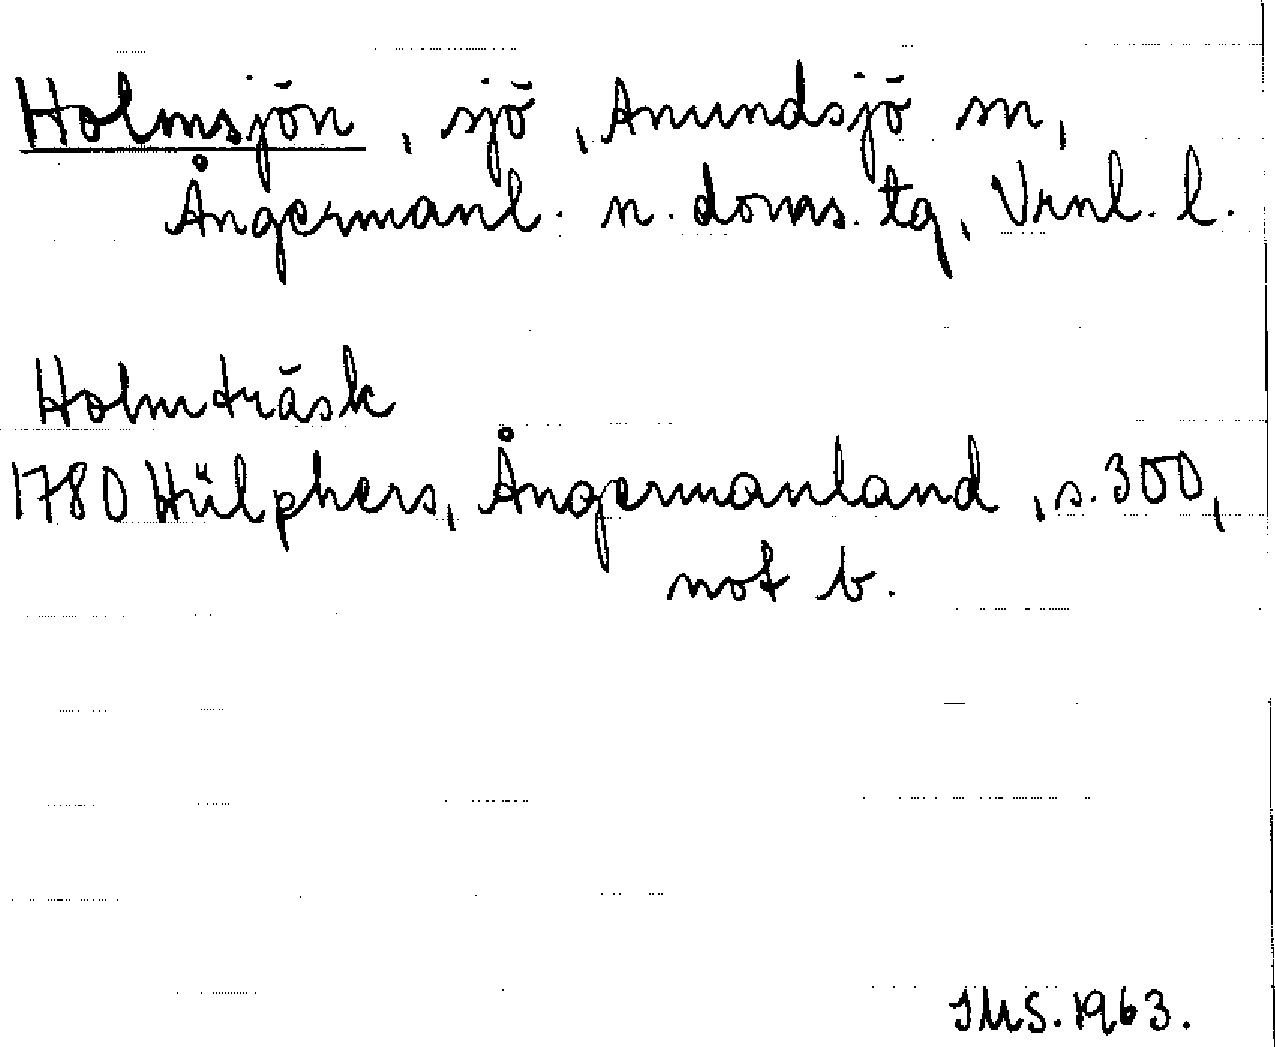 Holmsjön, sjö, Anundsjö sn,
Ångermanl. n. doms. tg, Vrnl. l.
Holmträsk
1780 Hülphers, Ångermanland, s. 300,
not b.
IMS. 1963.